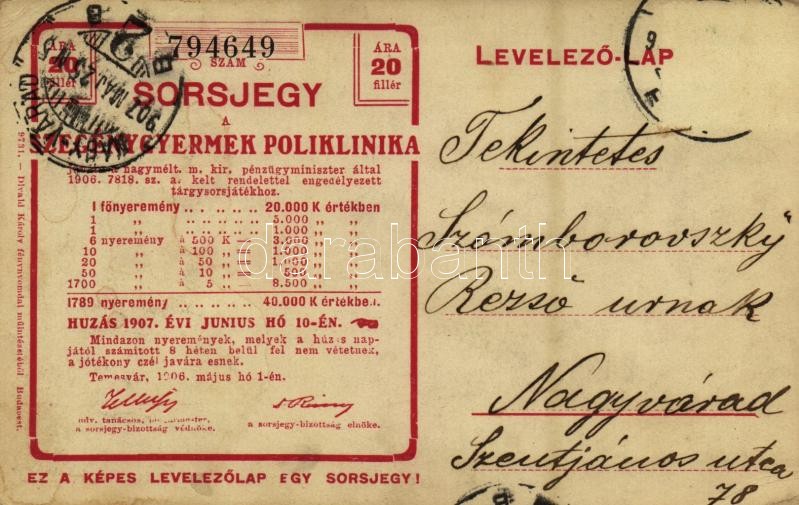 ÁRA
20
fillér
794649
SZÁM
ÁRA
20
fillér
SORSJEGY
A
SZEGÉNYGYERMEK POLIKLINIKA
a nagymélt. m. kir. pénzügyminiszter által
1906. 7818. sz. a. kelt rendelettel engedélyezett
tárgysorsjátékhoz.
1 főnyeremény .. .. .. .. .. 20.000 K értékben
1 „ .. .. .. .. .. 5.000 „ „
1 „ .. .. .. .. .. 1.000 „ „
6 nyeremény à 500 K = 3.000 „ „
10 „ à 100 „ = 1.000 „ „
20 „ à 50 „ = 1.000 „ „
50 „ à 10 „ = 500 „ „
1700 „ à 5 „ = 8.500 „ „
1789 nyeremény .. .. .. .. 40.000 K értékben.
HUZÁS 1907. ÉVI JUNIUS HÓ 10-ÉN.
Mindazon nyeremények, melyek a húzás nap-
jától számított 8 héten belül fel nem vétetnek,
a jótékony czél javára esnek.
Temesvár, 1906. május hó 1-én.
udv. tanácsos, polgármester,
a sorsjegy-bizottság védnöke.
a sorsjegy-bizottság elnöke.
EZ A KÉPES LEVELEZŐLAP EGY SORSJEGY!
9731. — Divald Károly fénynyomdai műintézetéből Budapest.
LEVELEZŐ-LAP
Tekintetes
Szémborovszky
Rezső urnak
Nagyvárad
Szentjános utca
78
NAGYVÁRAD
907 MAJ
darabanth